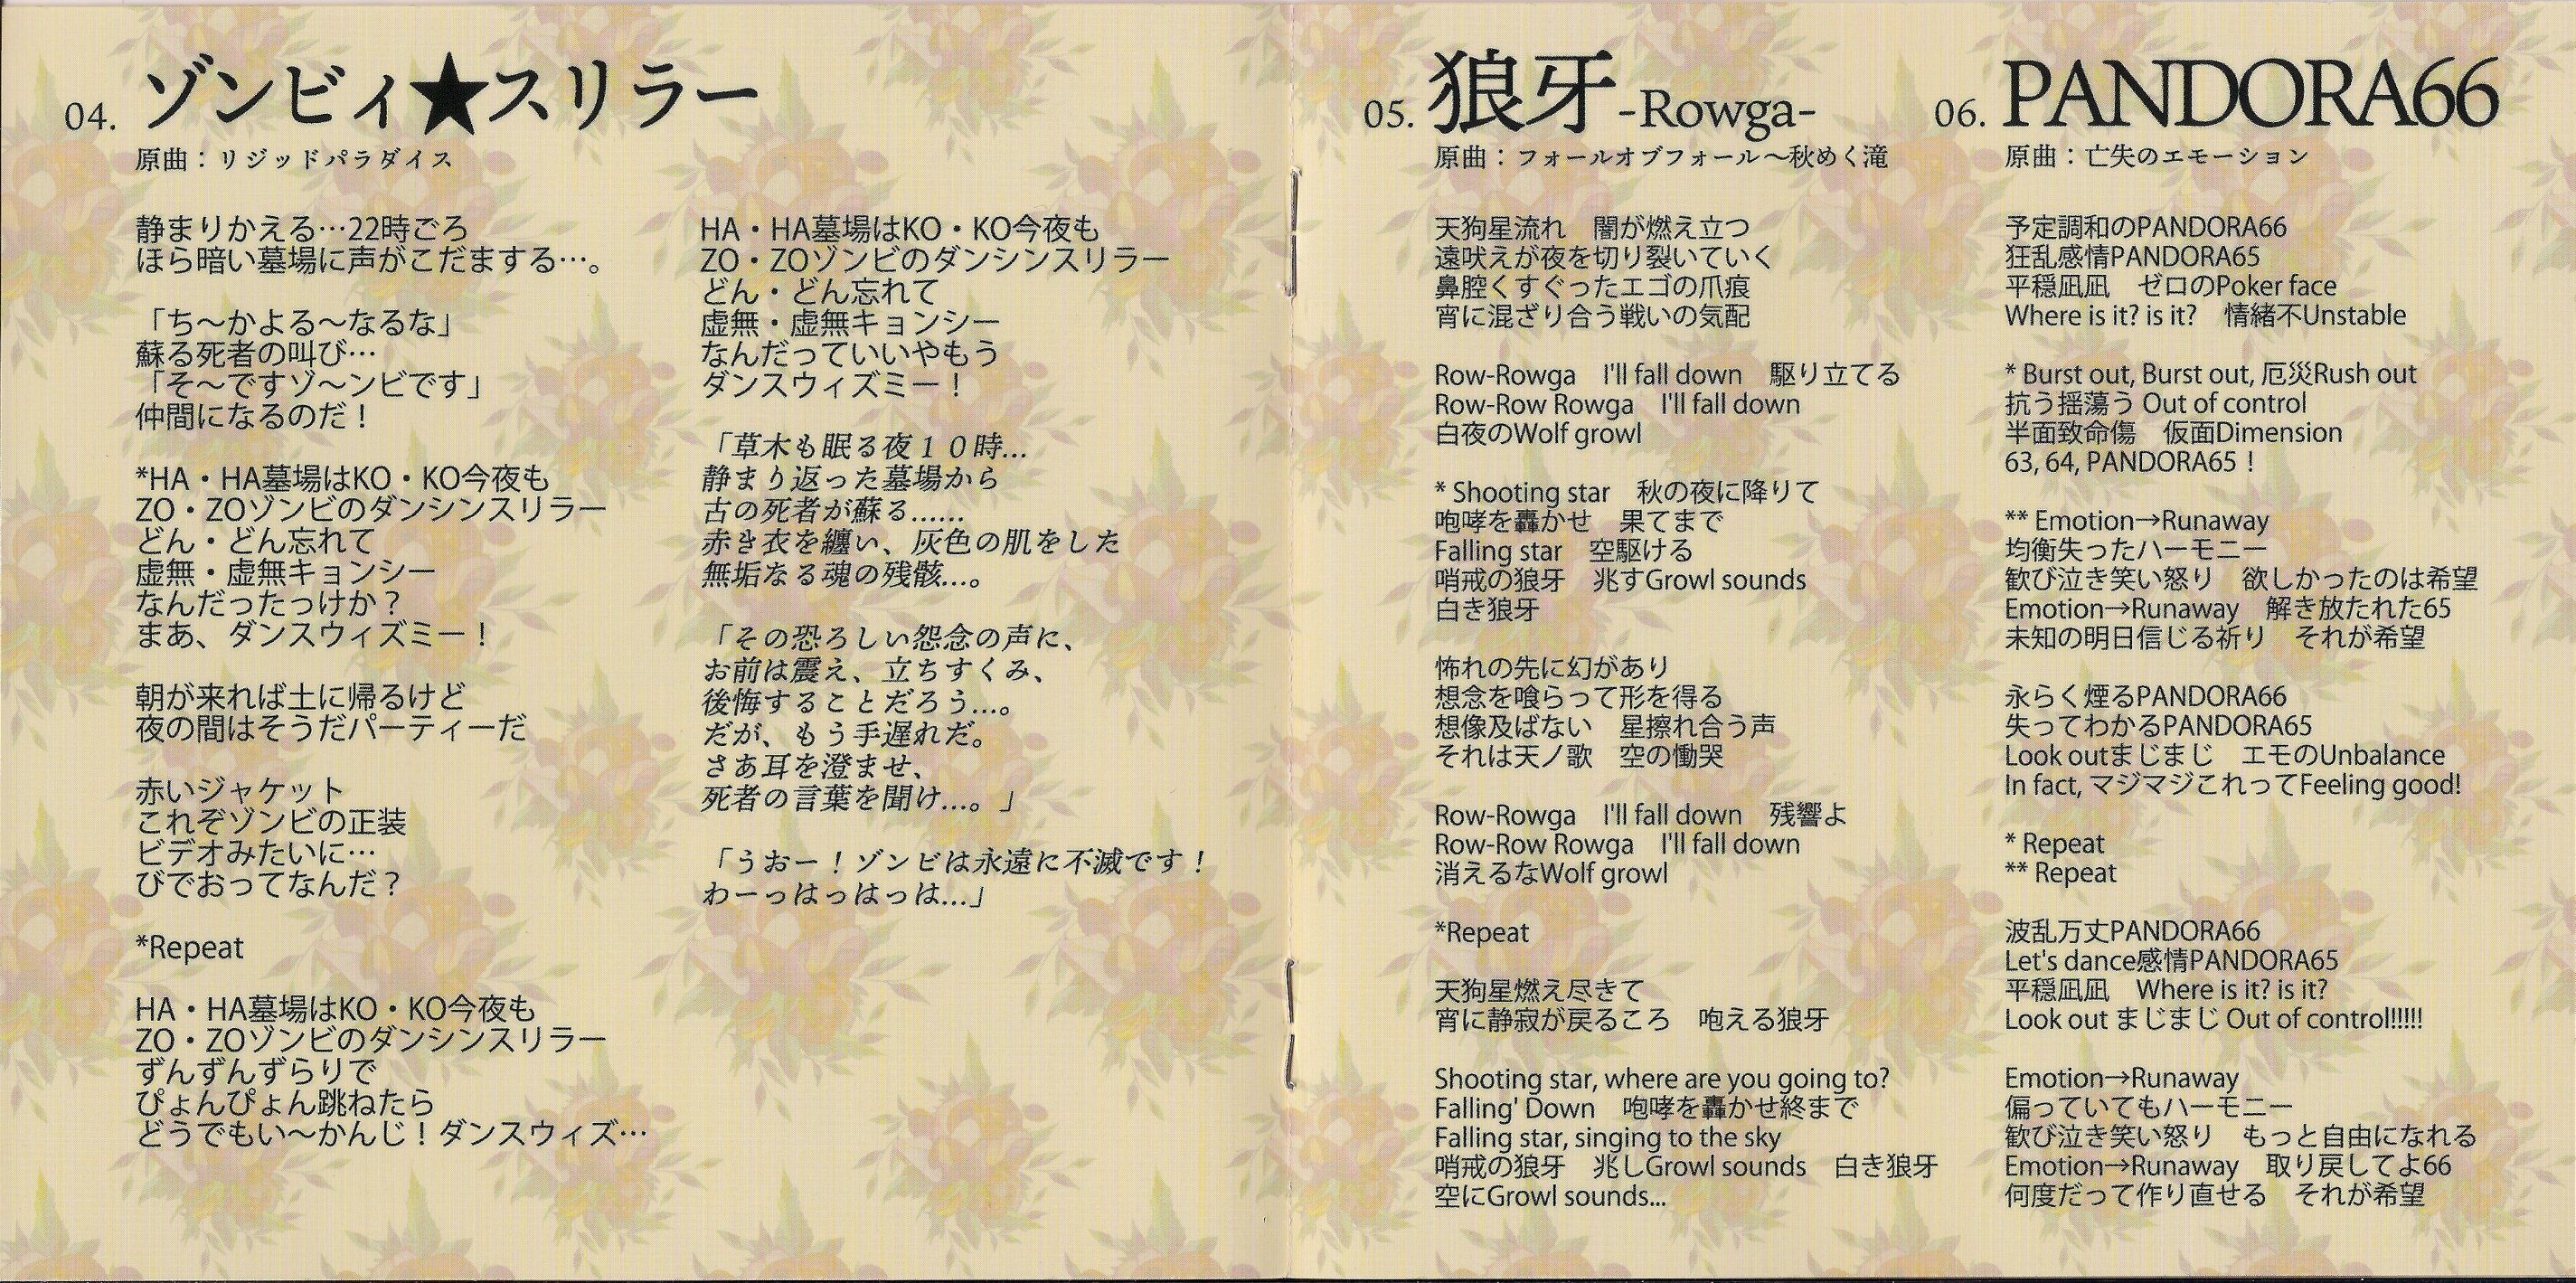 04. ゾンビィ★スリラー
原曲：リジッドパラダイス
静まりかえる…22時ごろ
ほら暗い墓場に声がこだまする…。
「ち～かよる～なるな」
蘇る死者の叫び…
「そ～ですゾ～ンビです」
仲間になるのだ！
*HA・HA墓場はKO・KO今夜も
ZO・ZOゾンビのダンシンスリラー
どん・どん忘れて
虚無・虚無キョンシー
なんだったっけか？
まあ、ダンスウィズミー！
朝が来れば土に帰るけど
夜の間はそうだパーティーだ
赤いジャケット
これぞゾンビの正装
ビデオみたいに…
びでおってなんだ？
*Repeat
HA・HA墓場はKO・KO今夜も
ZO・ZOゾンビのダンシンスリラー
ずんずんずらりで
ぴょんぴょん跳ねたら
どうでもい～かんじ！ダンスウィズ…
HA・HA墓場はKO・KO今夜も
ZO・ZOゾンビのダンシンスリラー
どん・どん忘れて
虚無・虚無キョンシー
なんだっていいやもう
ダンスウィズミー！
「草木も眠る夜１０時…
静まり返った墓場から
古の死者が蘇る……
赤き衣を纏い、灰色の肌をした
無垢なる魂の残骸…。
「その恐ろしい怨念の声に、
お前は震え、立ちすくみ、
後悔することだろう…。
だが、もう手遅れだ。
さあ耳を澄ませ、
死者の言葉を聞け…。」
「うおー！ゾンビは永遠に不滅です！
わーっはっはっは…」
05. 狼牙 -Rowga-
原曲：フォールオブフォール～秋めく滝
天狗星流れ　闇が燃え立つ
遠吠えが夜を切り裂いていく
鼻腔くすぐったエゴの爪痕
宵に混ざり合う戦いの気配
Row-Rowga　I'll fall down　駆り立てる
Row-Row Rowga　I'll fall down
白夜のWolf growl
* Shooting star　秋の夜に降りて
咆哮を轟かせ　果てまで
Falling star　空駆ける
哨戒の狼牙　兆すGrowl sounds
白き狼牙
怖れの先に幻があり
想念を喰らって形を得る
想像及ばない　星擦れ合う声
それは天ノ歌　空の慟哭
Row-Rowga　I'll fall down　残響よ
Row-Row Rowga　I'll fall down
消えるなWolf growl
*Repeat
天狗星燃え尽きて
宵に静寂が戻るころ　咆える狼牙
Shooting star, where are you going to?
Falling' Down　咆哮を轟かせ終まで
Falling star, singing to the sky
哨戒の狼牙　兆しGrowl sounds　白き狼牙
空にGrowl sounds...
06. PANDORA66
原曲：亡失のエモーション
予定調和のPANDORA66
狂乱感情PANDORA65
平穏凪凪　ゼロのPoker face
Where is it? is it?　情緒不Unstable
* Burst out, Burst out, 厄災Rush out
抗う揺蕩う Out of control
半面致命傷　仮面Dimension
63, 64, PANDORA65！
** Emotion→Runaway
均衡失ったハーモニー
歓び泣き笑い怒り　欲しかったのは希望
Emotion→Runaway　解き放たれた65
未知の明日信じる祈り　それが希望
永らく煙るPANDORA66
失ってわかるPANDORA65
Look outまじまじ　エモのUnbalance
In fact, マジマジこれってFeeling good!
* Repeat
** Repeat
波乱万丈PANDORA66
Let's dance感情PANDORA65
平穏凪凪　Where is it? is it?
Look out まじまじ Out of control!!!!!
Emotion→Runaway
偏っていてもハーモニー
歓び泣き笑い怒り　もっと自由になれる
Emotion→Runaway　取り戻してよ66
何度だって作り直せる　それが希望